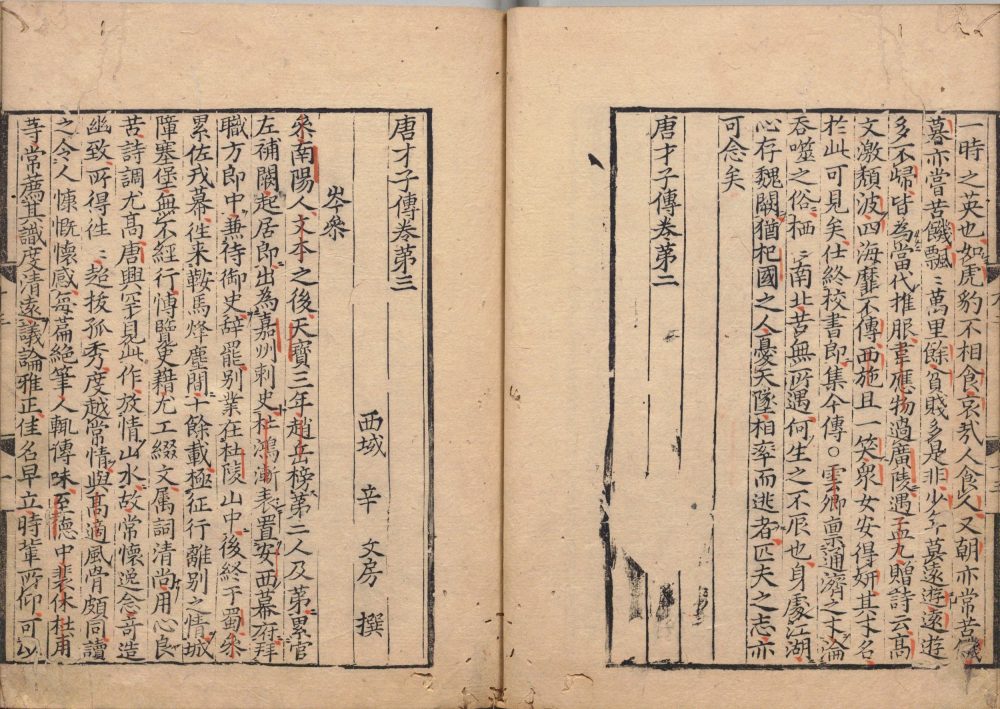 一時之英也如虎豹不相食哀哉人食人又朝亦常苦
暮亦嘗苦饑飄〻萬里餘貧賤多是非少年莫遠遊遠遊
多不歸皆為當代推服韋應物過廣陵遇孟九贈詩云高
文激頹波四海靡不傳西施且一笑衆女安得妍其才名
於此可見矣仕終校書郎集今傳○雲卿禀通濟之才淪
吞噬之俗栖〻南北苦無所遇何生之不辰也身處江湖
心存魏闕猶杞國之人憂天墜相率而逃者匹夫之志亦
可念矣
唐才子傳卷第二
唐才子傳卷第三
西域 辛 文房 撰
岑參
參南陽人文本之後天寶三年趙岳榜第二人及第累官
左補闕起居郎出為嘉州刺史杜鴻漸表置安西幕府拜
職方郎中兼侍御史辭罷别業在杜陵山中後終于蜀參
累佐戎幕徃来鞍馬烽塵間十餘載極征行離别之情城
障塞堡無不經行愽覽史籍尤工綴文属詞清尚用心良
苦詩調尤高唐興罕見此作放情山水故常懷逸念竒造
幽致所得徃〻超拔孤秀度越常情與高適風骨頗同讀
之令人慷慨懷感每篇絶筆人輒傳味至德中裴休杜甫
等常薦其識度清遠議論雅正佳名早立時輩所仰可以